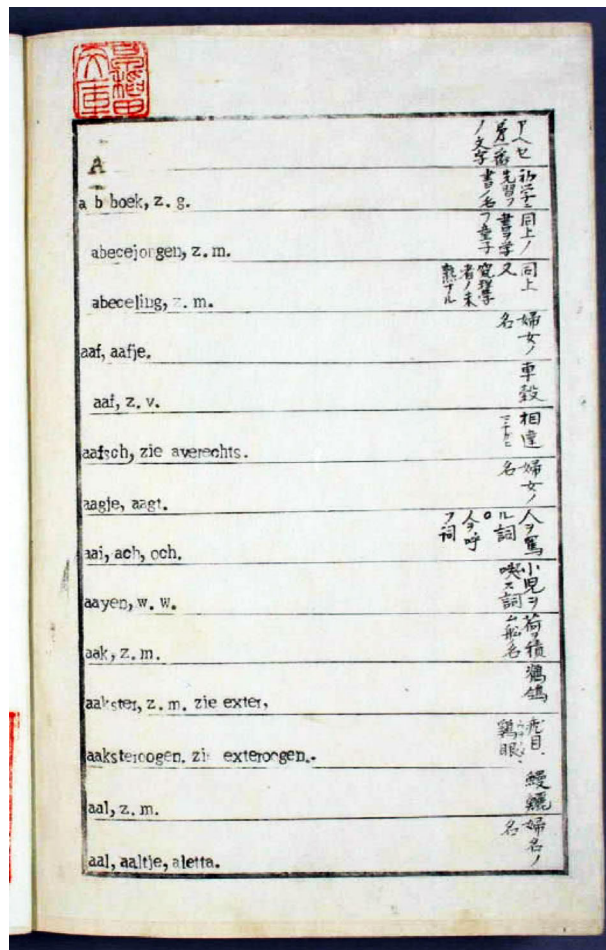 A
アヘセ
第一番
ノ文字
a b boek, z. g.
初学
先習フ
書ノ名
abecejorgen, z. m.
同上ノ
書ヲ学
フ童子
abeceling, z. m.
同上
又
究理学
者ノ未
熟ナル
aaf, aafje.
婦女ノ
名
aaf, z. v.
車轂
aafsch, zie averechts.
相違
aagje, aagt.
婦女ノ
名
aai, ach, och.
人ヲ罵
ル詞
人ヲ呼
フ詞
aayen, w. w.
小児ヲ
喫ス詞
aak, z. m.
荷ヲ積
ム船名
aakster, z. m. zie exter,
aaksteroogen, zie exteroogen.
鶏眼
aal, z. m.
鰻鱺
aal, aaltje, aletta.
婦名ノ
名